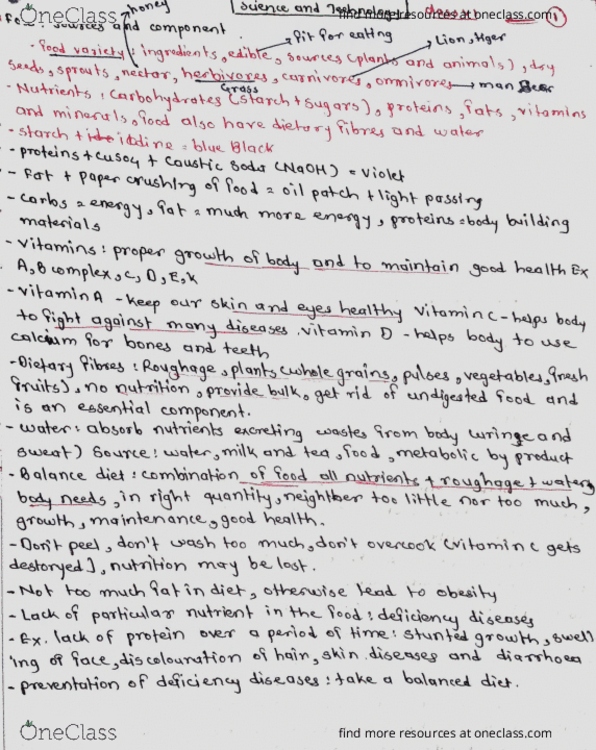 OneClass
find more resources at oneclass.com
honey
Science and Technology
1
sources and component
fit for eating
Lion, tiger
- food variety : ingredients, edible, sources (plants and animals), dry
seeds, sprouts, nectar, herbivores, carnivores, omnivores → man Bear
Grass
- Nutrients : carbohydrates (starch + sugars), proteins, fats, vitamins
and minerals, food also have dietary fibres and water
- starch + iodine = blue Black
- proteins + cuso4 + caustic soda (NaOH) = violet
- fat + paper crushing of food = oil patch + light passing
- carbs = energy, fat = much more energy, proteins = body building
materials
- vitamins : proper growth of body and to maintain good health Ex
A, B complex, C, D, E, K
- vitamin A - keep our skin and eyes healthy vitamin c - helps body
to fight against many diseases . vitamin D - helps body to use
calcium for bones and teeth
- Dietary fibres : Roughage, plants (whole grains, pulses, vegetables, fresh
fruits), no nutrition, provide bulk, get rid of undigested food and
is an essential component.
- water : absorb nutrients excreting wastes from body (uringe and
sweat) source : water, milk and tea, food, metabolic by product
- Balance diet : combination of food all nutrients + roughage + water,
body needs, in right quantity, neightber too little nor too much,
growth, maintenance, good health.
- Don't peel, don't wash too much, don't overcook (vitamin c gets
destoryed], nutrition may be lost.
- Not too much fat in diet, otherwise lead to obesity
- Lack of particular nutrient in the food : deficiency diseases
- Ex. lack of protein over a period of time : stunted growth, swell
ing of face, discolouration of hair, skin diseases and diarrhoea
- preventation of deficiency diseases : take a balanced diet.
OneClass
find more resources at oneclass.com